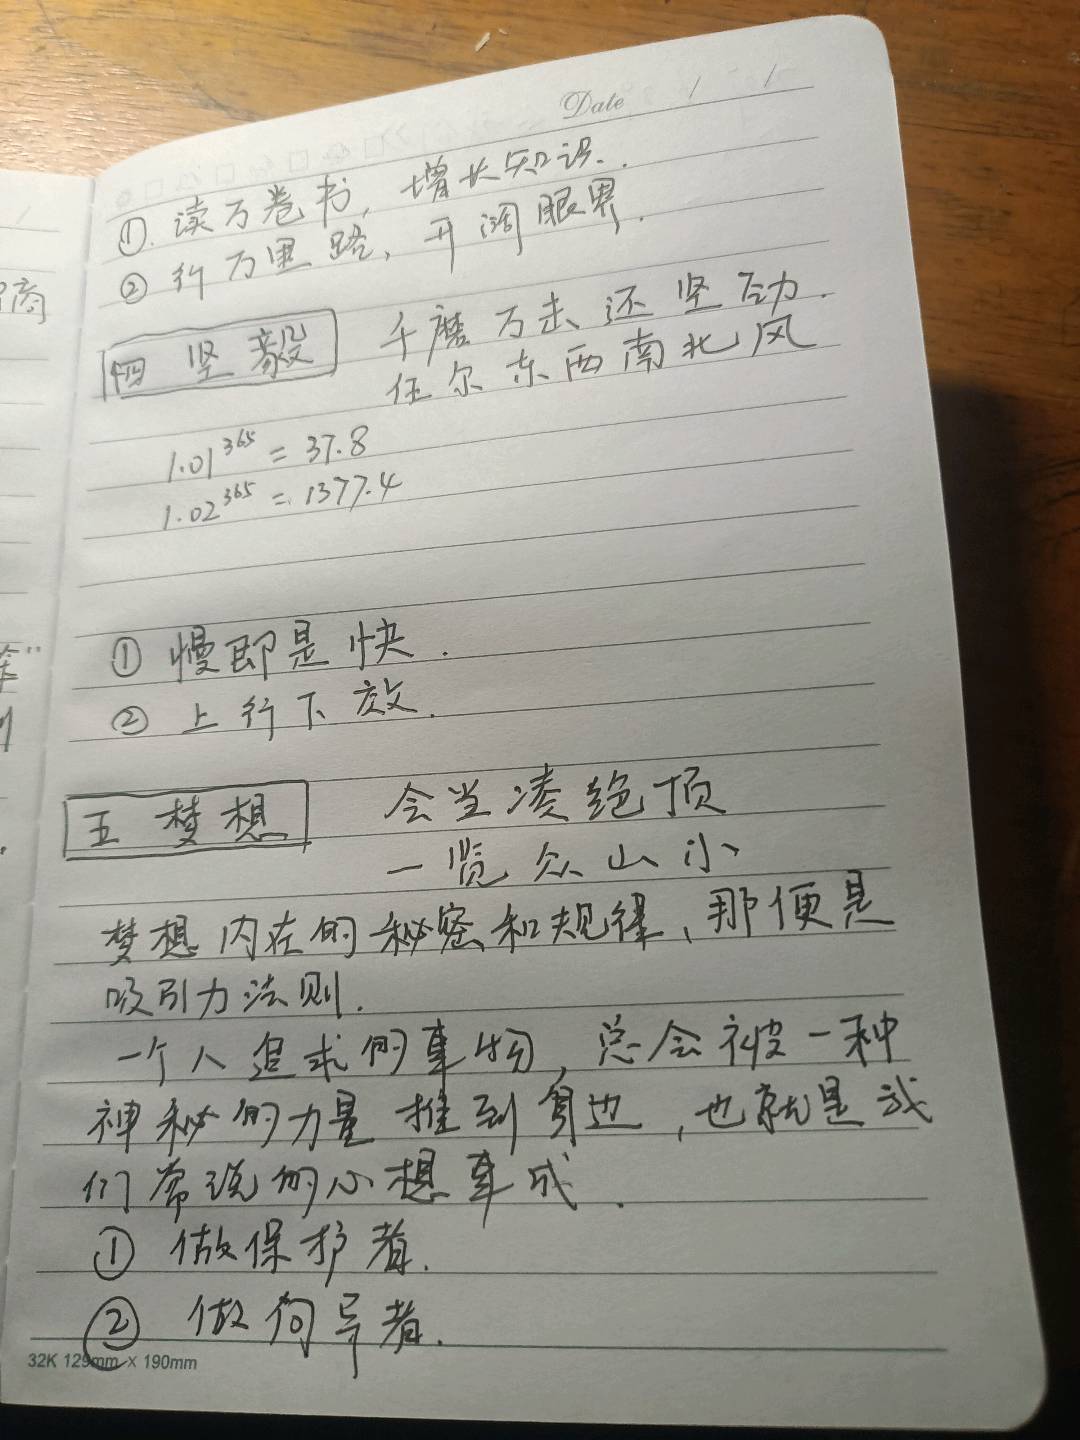 Date / /
①. 读万卷书, 增长知识.
② 行万里路, 开阔眼界.
四 坚毅 千磨万击还坚劲.
任尔东西南北风
1.01^365 = 37.8
1.02^365 = 1377.4
① 慢即是快.
② 上行下效.
五 梦想 会当凌绝顶
一览众山小
梦想内在的秘密和规律, 那便是
吸引力法则.
一个人追求的事物, 总会被一种
神秘的力量推到身边, 也就是我
们常说的心想事成.
① 做保护者.
② 做向导者.
32K 129mm × 190mm